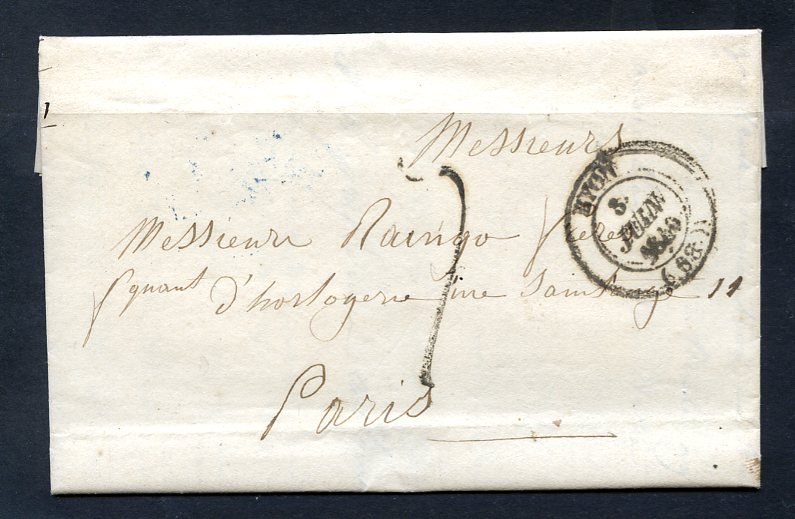 Messieurs
Messieurs Raingo frères
d'horlogerie rue Saintonge 11
Paris
7
LYON
8
JUIN
1846
(68)